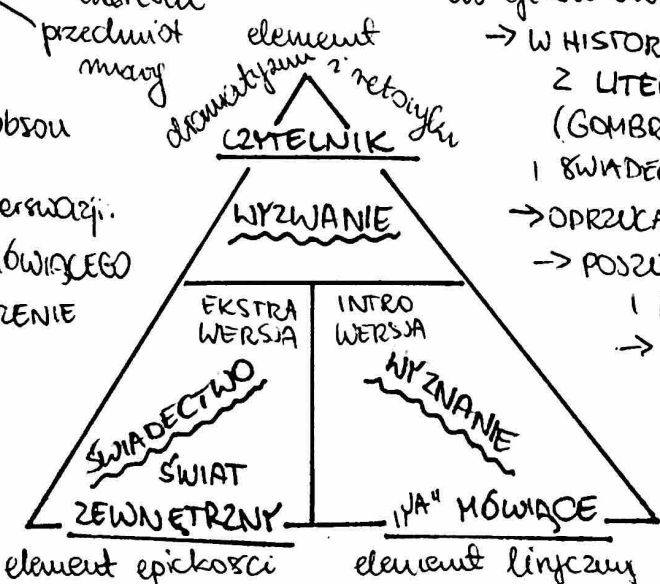 przedmiot
mowy
element
dramatyzmu i retoryki
CZYTELNIK
WYZWANIE
EKSTRA
WERSJA
INTRO
WERSJA
ŚWIADECTWO
WYZNANIE
ŚWIAT
ZEWNĘTRZNY
"JA" MÓWIĄCE
element epickości
element liryczny
erswazji.
ÓWIĄCEGO
ZENIE
→ W HISTOR
Z LITE
(GOMBR
I ŚWIADE
→ ODRZUCA
→ POSZU
I
→